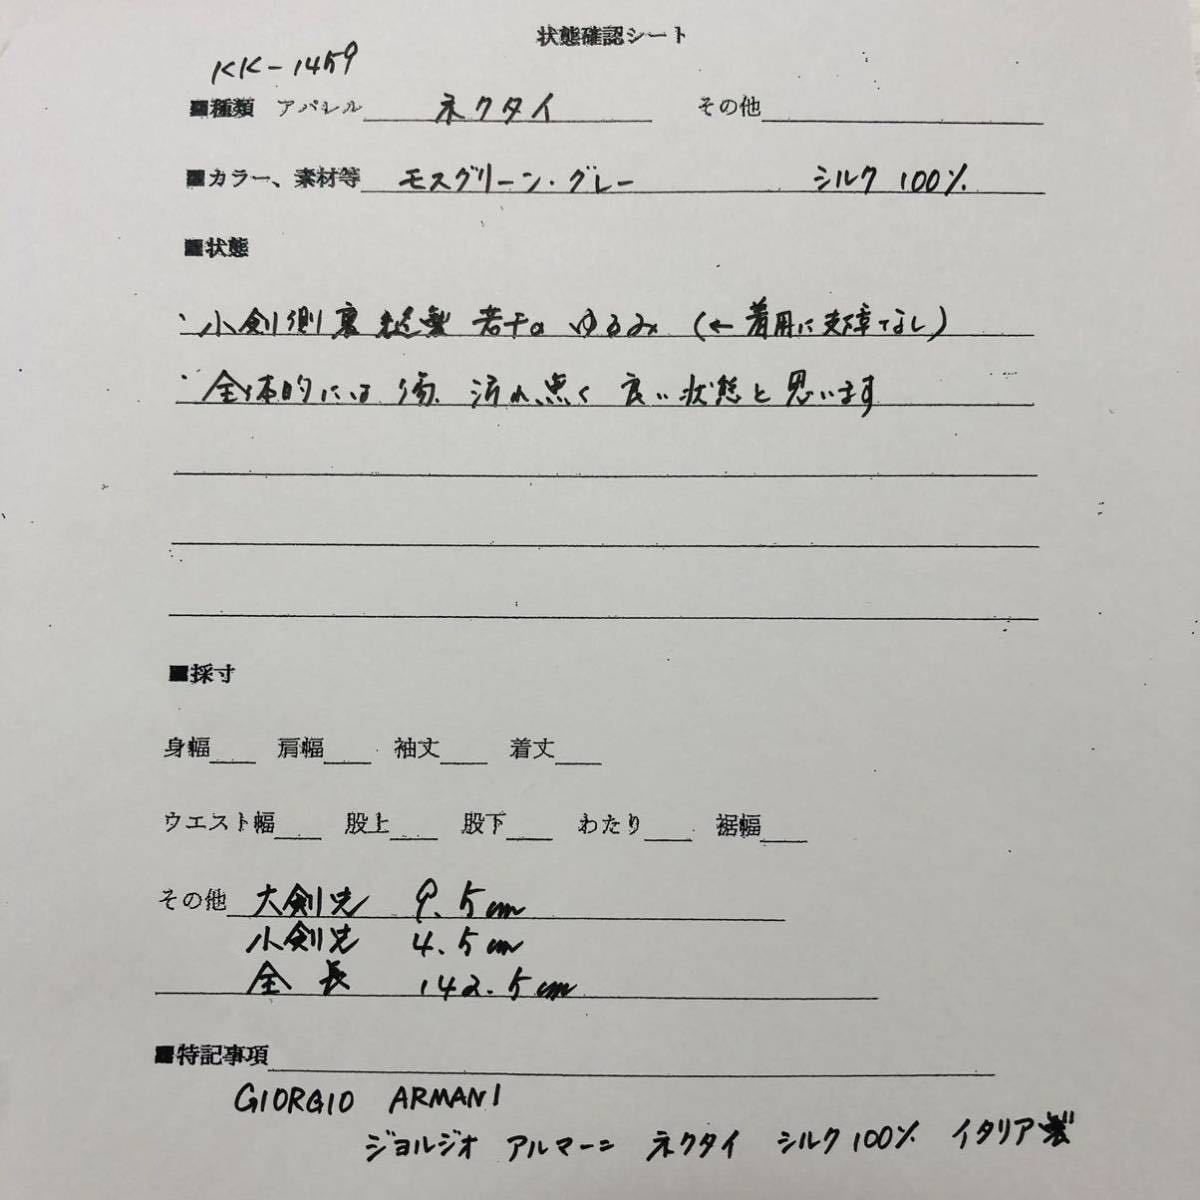 状態確認シート
KK-1459
■種類 アパレル ネクタイ その他
■カラー、素材等 モスグリーン・グレー シルク 100%
■状態
・小剣側裏 縫製 若干の ゆるみ (←着用に支障なし)
・全体的には 傷、汚れ 無く 良い状態と思います
■採寸
身幅 肩幅 袖丈 着丈
ウエスト幅 股上 股下 わたり 裾幅
その他 大剣先 9.5cm
小剣先 4.5cm
全長 142.5cm
■特記事項
GIORGIO ARMANI
ジョルジオ アルマーニ ネクタイ シルク100% イタリア製